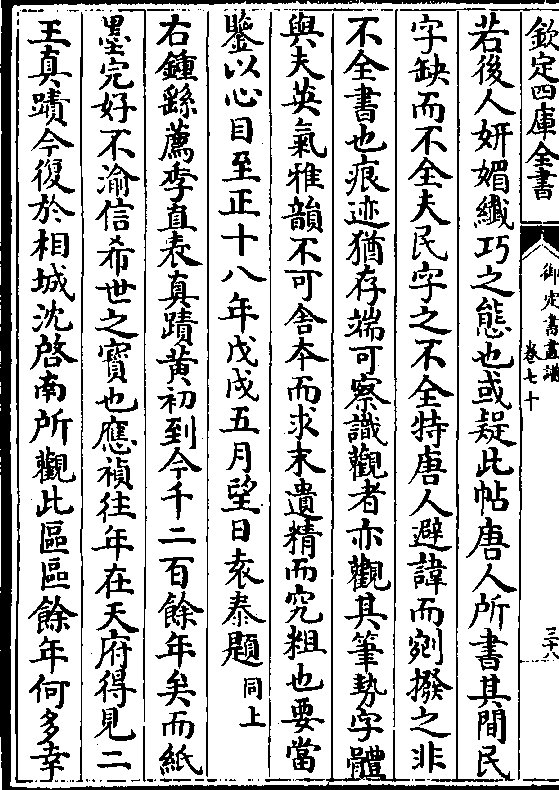 欽定四庫全書
御定書畫譜
卷七十
三六
若後人妍媚纖巧之態也或疑此帖唐人所書其間民
字缺而不全夫民字之不全特唐人避諱而剜撥之非
不全書也痕迹猶存端可察識觀者亦觀其筆勢字體
與夫英氣雅韻不可舍本而求末遺精而究粗也要當
鑒以心目至正十八年戊戌五月望日袁泰題同上
右鍾繇薦季直表真蹟黃初到今千二百餘年矣而紙
墨完好不渝信希世之寶也應禎往年在天府得見二
王真蹟今復於相城沈啓南所觀此區區餘年何多幸